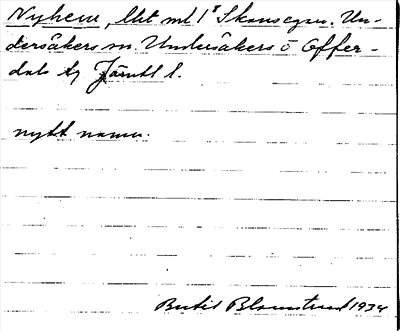 Nyhem, lht ml 1⁸ Skansegen. Un-
dersåkers sn. Undersåkers o Offer-
dals tg Jämtl l.
nytt namn.
Bertil Blomstrand 1934